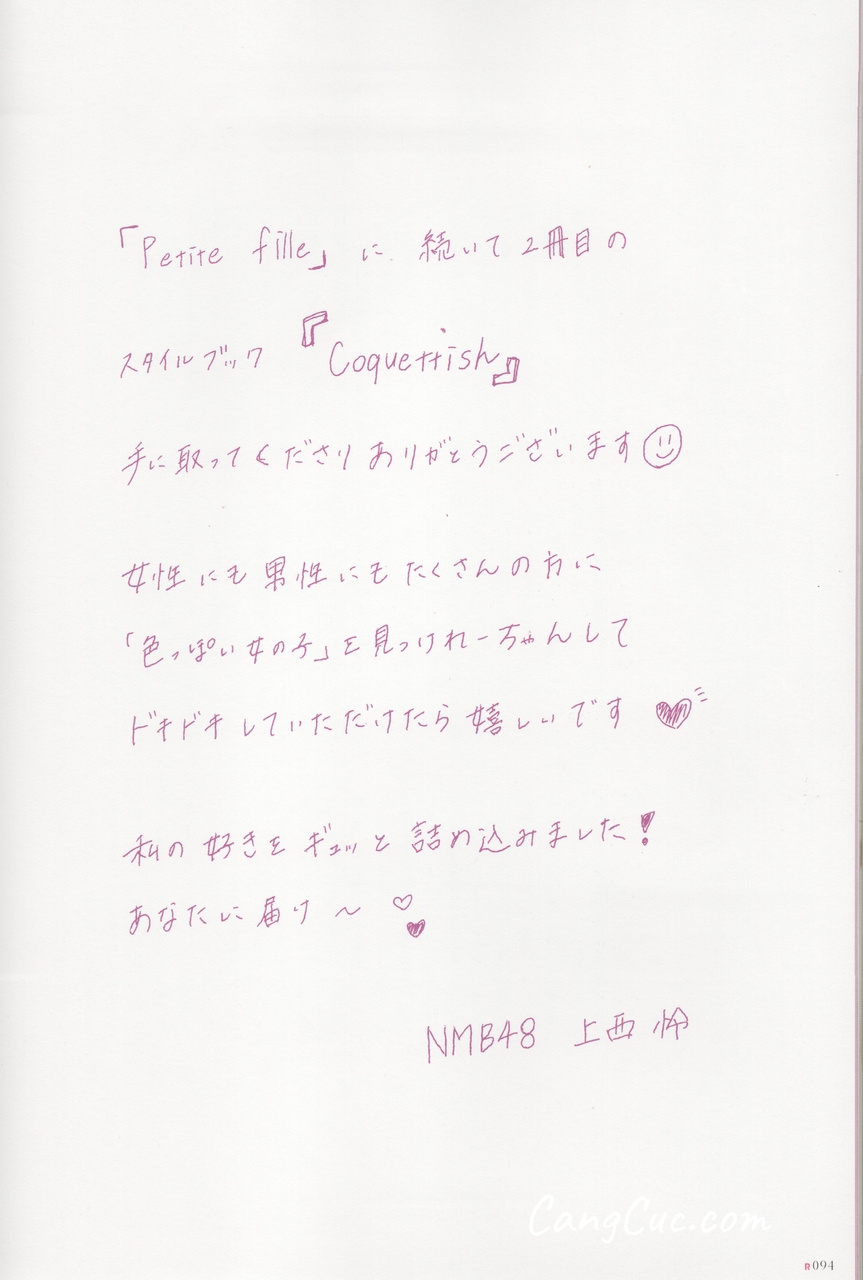 「Petite fille」に 続いて 2冊目の
スタイルブック 『Coquettish』
手に取ってくださりありがとうございます
女性にも男性にもたくさんの方に
「色っぽい女の子」を見つけれーちゃんして
ドキドキしていただけたら嬉しいです
私の好きをギュッと詰め込みました!
あなたに届け〜
NMB48 上西 怜
CangCuc.com
R094